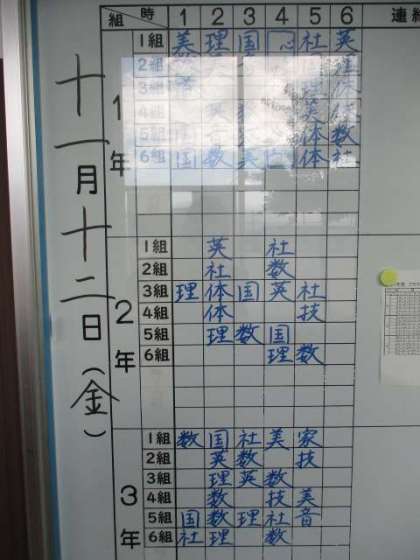 十一月十二日(金)
組 時 1 2 3 4 5 6 連絡
1年
1組 美 理 国 心 社 英
2組 理
3組 理 体
4組 英 英 体
5組 国 体 数
6組 国 数 英 体 社
2年
1組 英 社
2組 社 数
3組 理 体 国 英 社
4組 体 技
5組 理 数 国
6組 理 数
3年
1組 数 国 社 美 家
2組 英 数 技
3組 理 英 数
4組 数 技 美
5組 国 数 理 社 音
6組 社 理 数